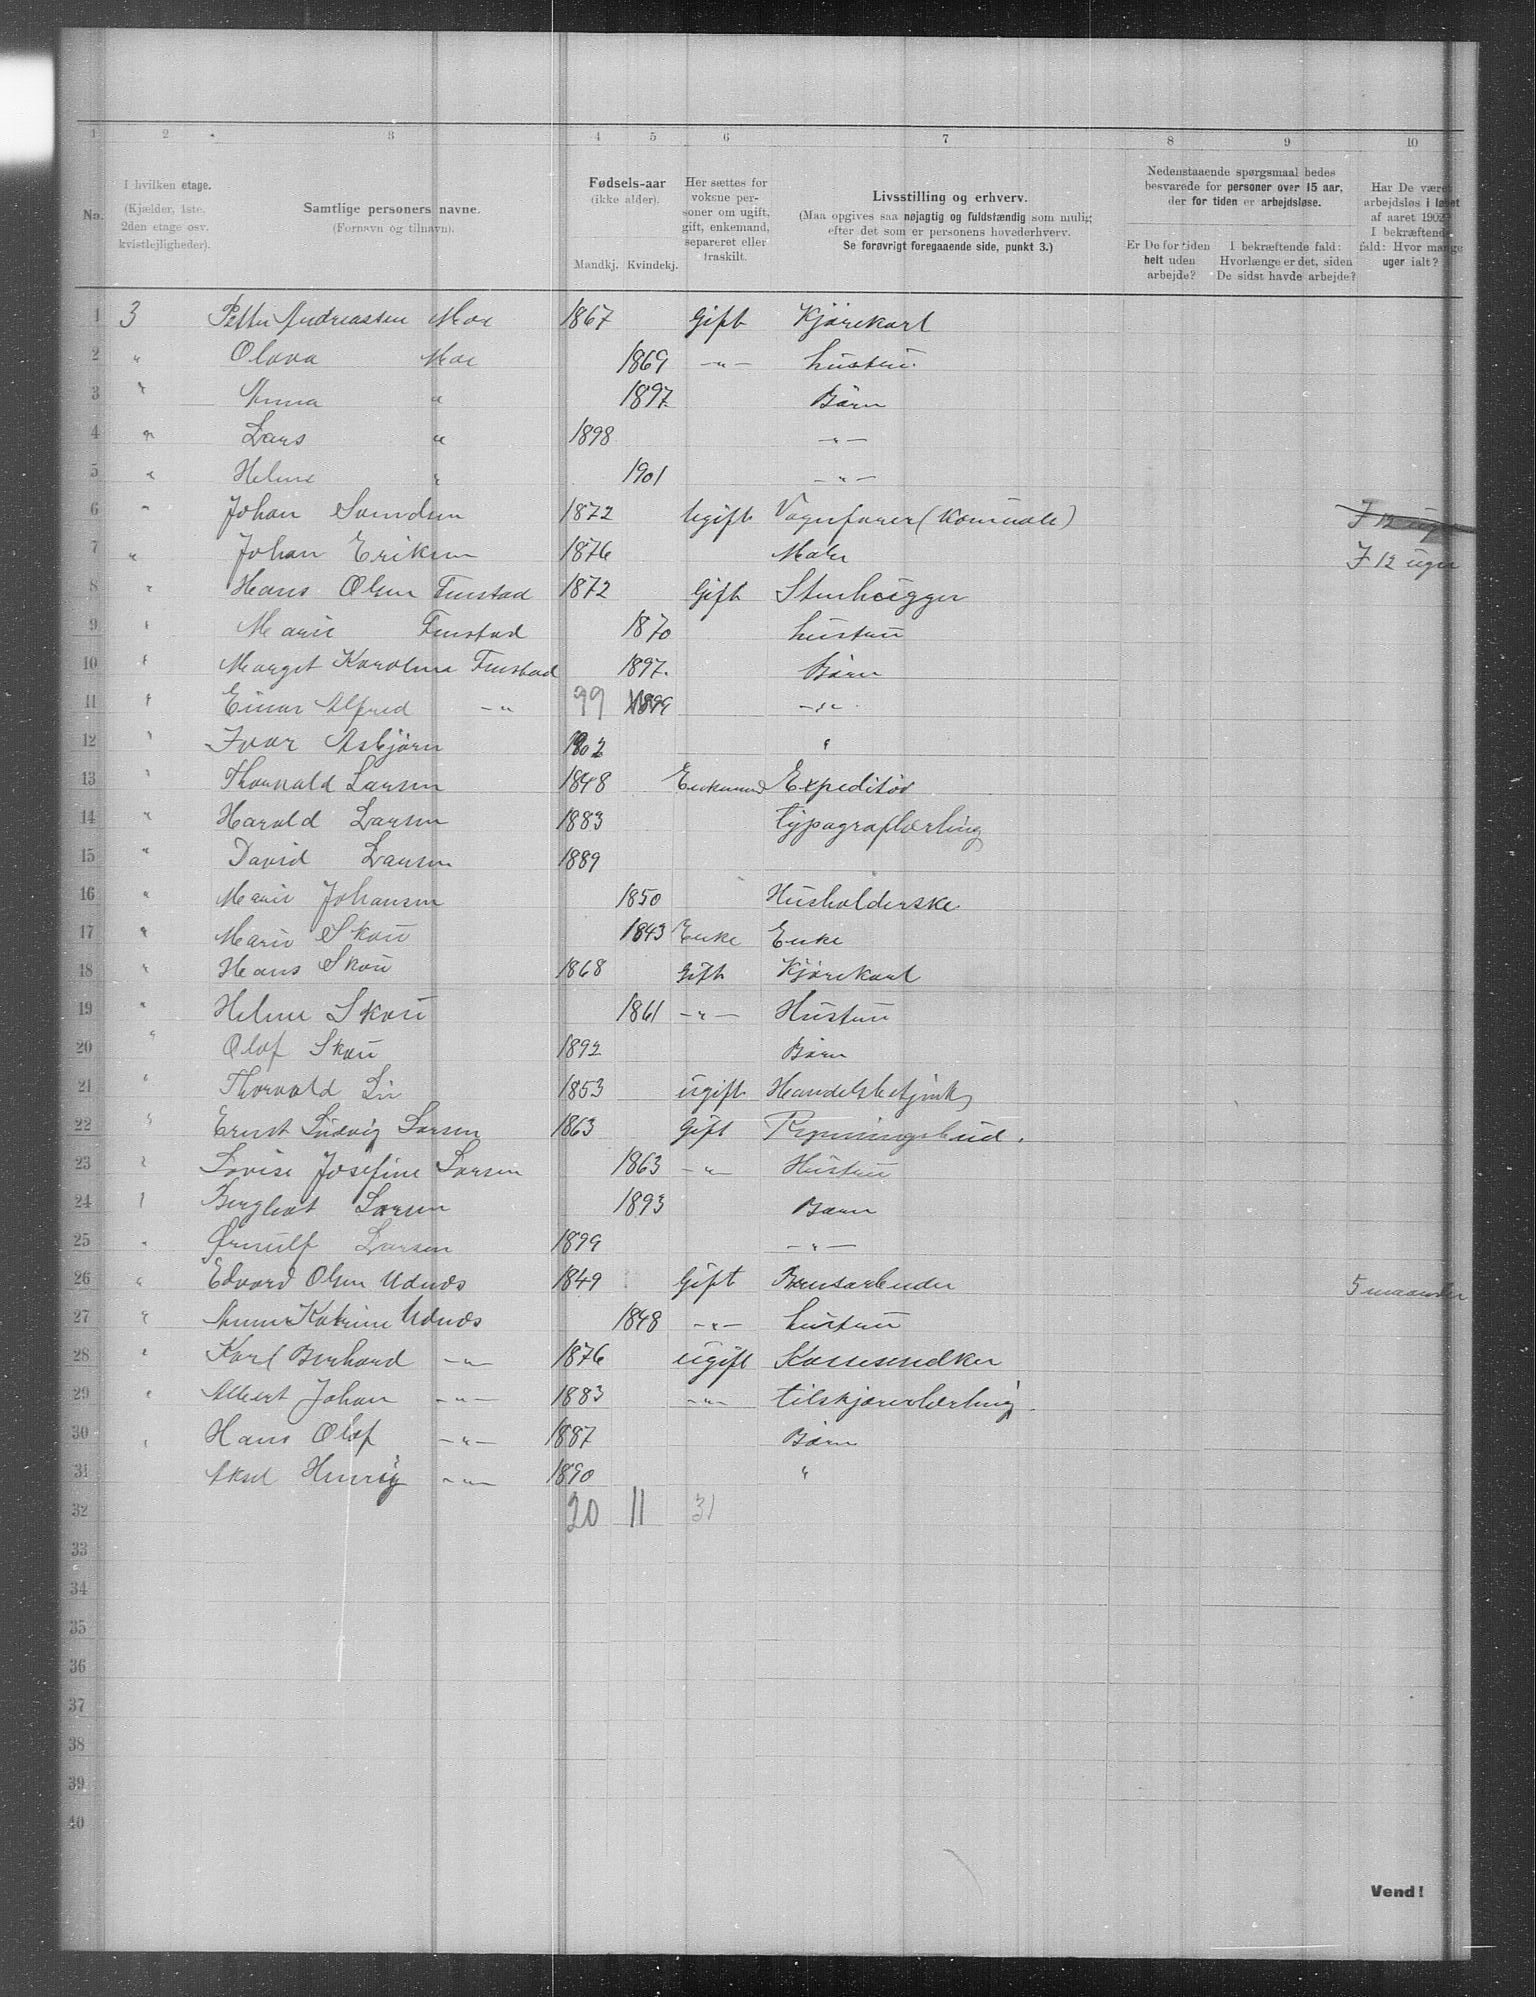 1 2 3 4 5 6 7 8 9 10
No.
I hvilken etage.
(Kjælder, 1ste,
2den etage osv.
kvistlejligheder).
Samtlige personers navne.
(Fornavn og tilnavn).
Fødsels-aar
(ikke alder).
Mandkj. Kvindekj.
Her sættes for
voksne per-
soner om ugift,
gift, enkemand,
separeret eller
fraskilt.
Livsstilling og erhverv.
(Maa opgives saa nøjagtig og fuldstændig som mulig
efter det som er personens hovederhverv.
Se forøvrigt foregaaende side, punkt 3.)
Nedenstaaende spørgsmaal bedes
besvarede for personer over 15 aar,
der for tiden er arbejdsløse.
Er De for tiden
helt uden
arbejde?
I bekræftende fald:
Hvorlænge er det, siden
De sidst havde arbejde?
Har De været
arbejdsløs i løbet
af aaret 1902?
I bekræftende
fald: Hvor mange
uger ialt?
1 3 Petter Andreassen Moe 1867 Gift Kjørekarl
2 " Olava Moe 1869 -"- hustru.
3 " Anna " 1897 Barn
4 " Lars " 1898 -"-
5 " Helene " 1901 -"-
6 " Johan Svendsen 1872 Ugift Vognfører (Komunale) J 12 uger
7 " Johan Eriksen 1876 Maler J 12 uger
8 " Hans Olsen Finstad 1872 Gift Stenhugger
9 " Marie Finstad 1870 hustru
10 " Margit Karoline Finstad 1897. Barn
11 " Einar Alfred -"- 99 1899 -"-
12 " Ivar Asbjørn 1902 "
13 " Thorvald Larsen 1848 Enkemand Expeditør
14 " Harald Larsen 1883 typograflærling
15 " David Larsen 1889
16 " Marie Johansen 1850 Husholderske
17 " Marie Skou 1843 Enke Enke
18 " Hans Skou 1868 Gift Kjørekarl
19 " Helene Skou 1861 -"- Hustru
20 " Olaf Skou 1892 Barn
21 " Thorvald Lie 1853 ugift Handelsbetjent
22 " Ernst Ludvig Larsen 1863 Gift Regningsbud.
23 " Lovise Josefine Larsen 1863 -"- Hustru
24 " Bergliot Larsen 1893 Barn
25 " Ørnulf Larsen 1899 -"-
26 " Edvard Olsen Udnæs 1849 Gift Brusarbeider 5 maaneder
27 " Anne Katrine Udnæs 1848 -"- hustru
28 " Karl Berhard -"- 1876 ugift
29 " Albert Johan -"- 1883 -"- tilskjærerlærling.
30 " Hans Olaf -"- 1887 Barn
31 Aksel Henrig -"- 1890 "
32 20 11 31
33
34
35
36
37
38
39
40
Vend!